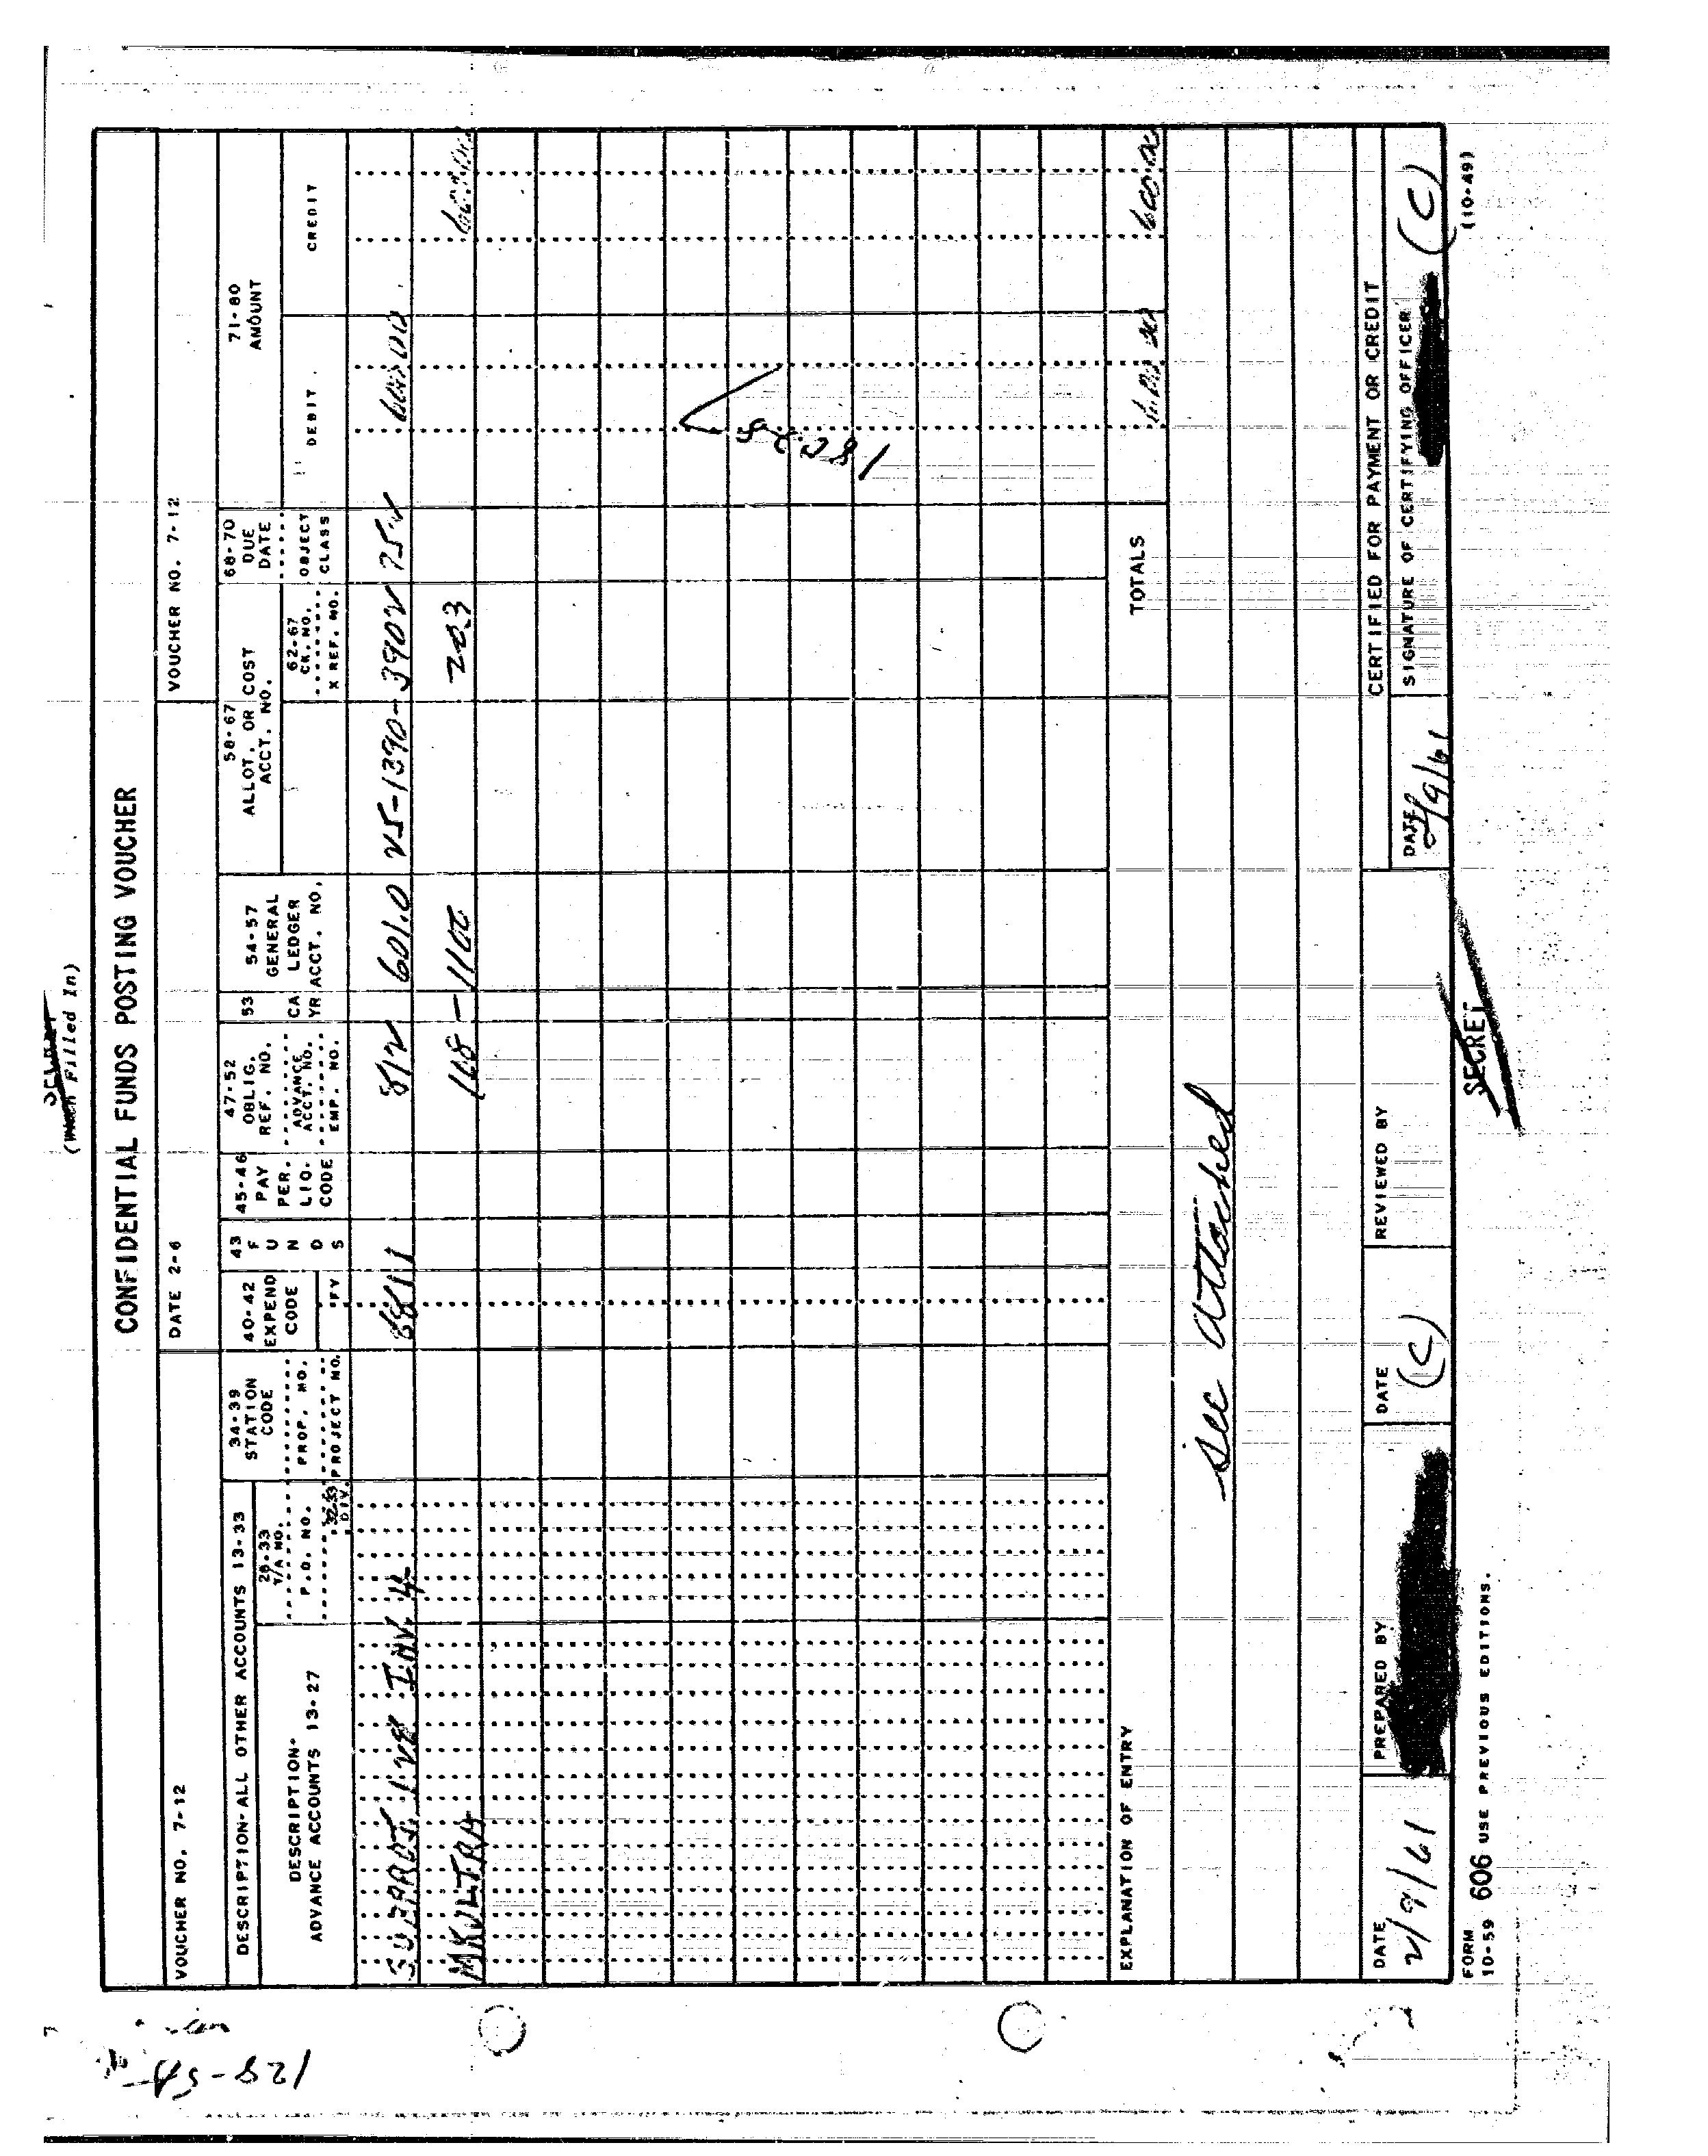 (When Filled In)
CONFIDENTIAL FUNDS POSTING VOUCHER
VOUCHER NO. 7-12
DATE 2-6
VOUCHER NO. 7-12
DESCRIPTION-ALL OTHER ACCOUNTS 13-33
DESCRIPTION-
ADVANCE ACCOUNTS 13-27
28-33
T/A NO.
P.O. NO.
32-33
DIV.
34-39
STATION
CODE
PROP. NO.
PROJECT NO.
40-42
EXPEND
CODE
FY
43
F
U
N
D
S
45-46
PAY
PER.
LIQ.
CODE
47-52
OBLIG.
REF. NO.
ADVANCE
ACCT. NO.
EMP. NO.
53
CA
YR
54-57
GENERAL
LEDGER
ACCT. NO.
58-67
ALLOT. OR COST
ACCT. NO.
62-67
CK. NO.
X REF. NO.
68-70
DUE
DATE
OBJECT
CLASS
71-80
AMOUNT
DEBIT
CREDIT
SUBPROJ. 128 INV. 4 812 601.0 25-1390-3902 252
MKULTRA 168-1100 203
TOTALS
EXPLANATION OF ENTRY
See attached
CERTIFIED FOR PAYMENT OR CREDIT
DATE
2/9/61
PREPARED BY
DATE
(C)
REVIEWED BY
DATE
2/9/61
SIGNATURE OF CERTIFYING OFFICER
(C)
FORM
10-59 606 USE PREVIOUS EDITIONS.
SECRET
(10-49)